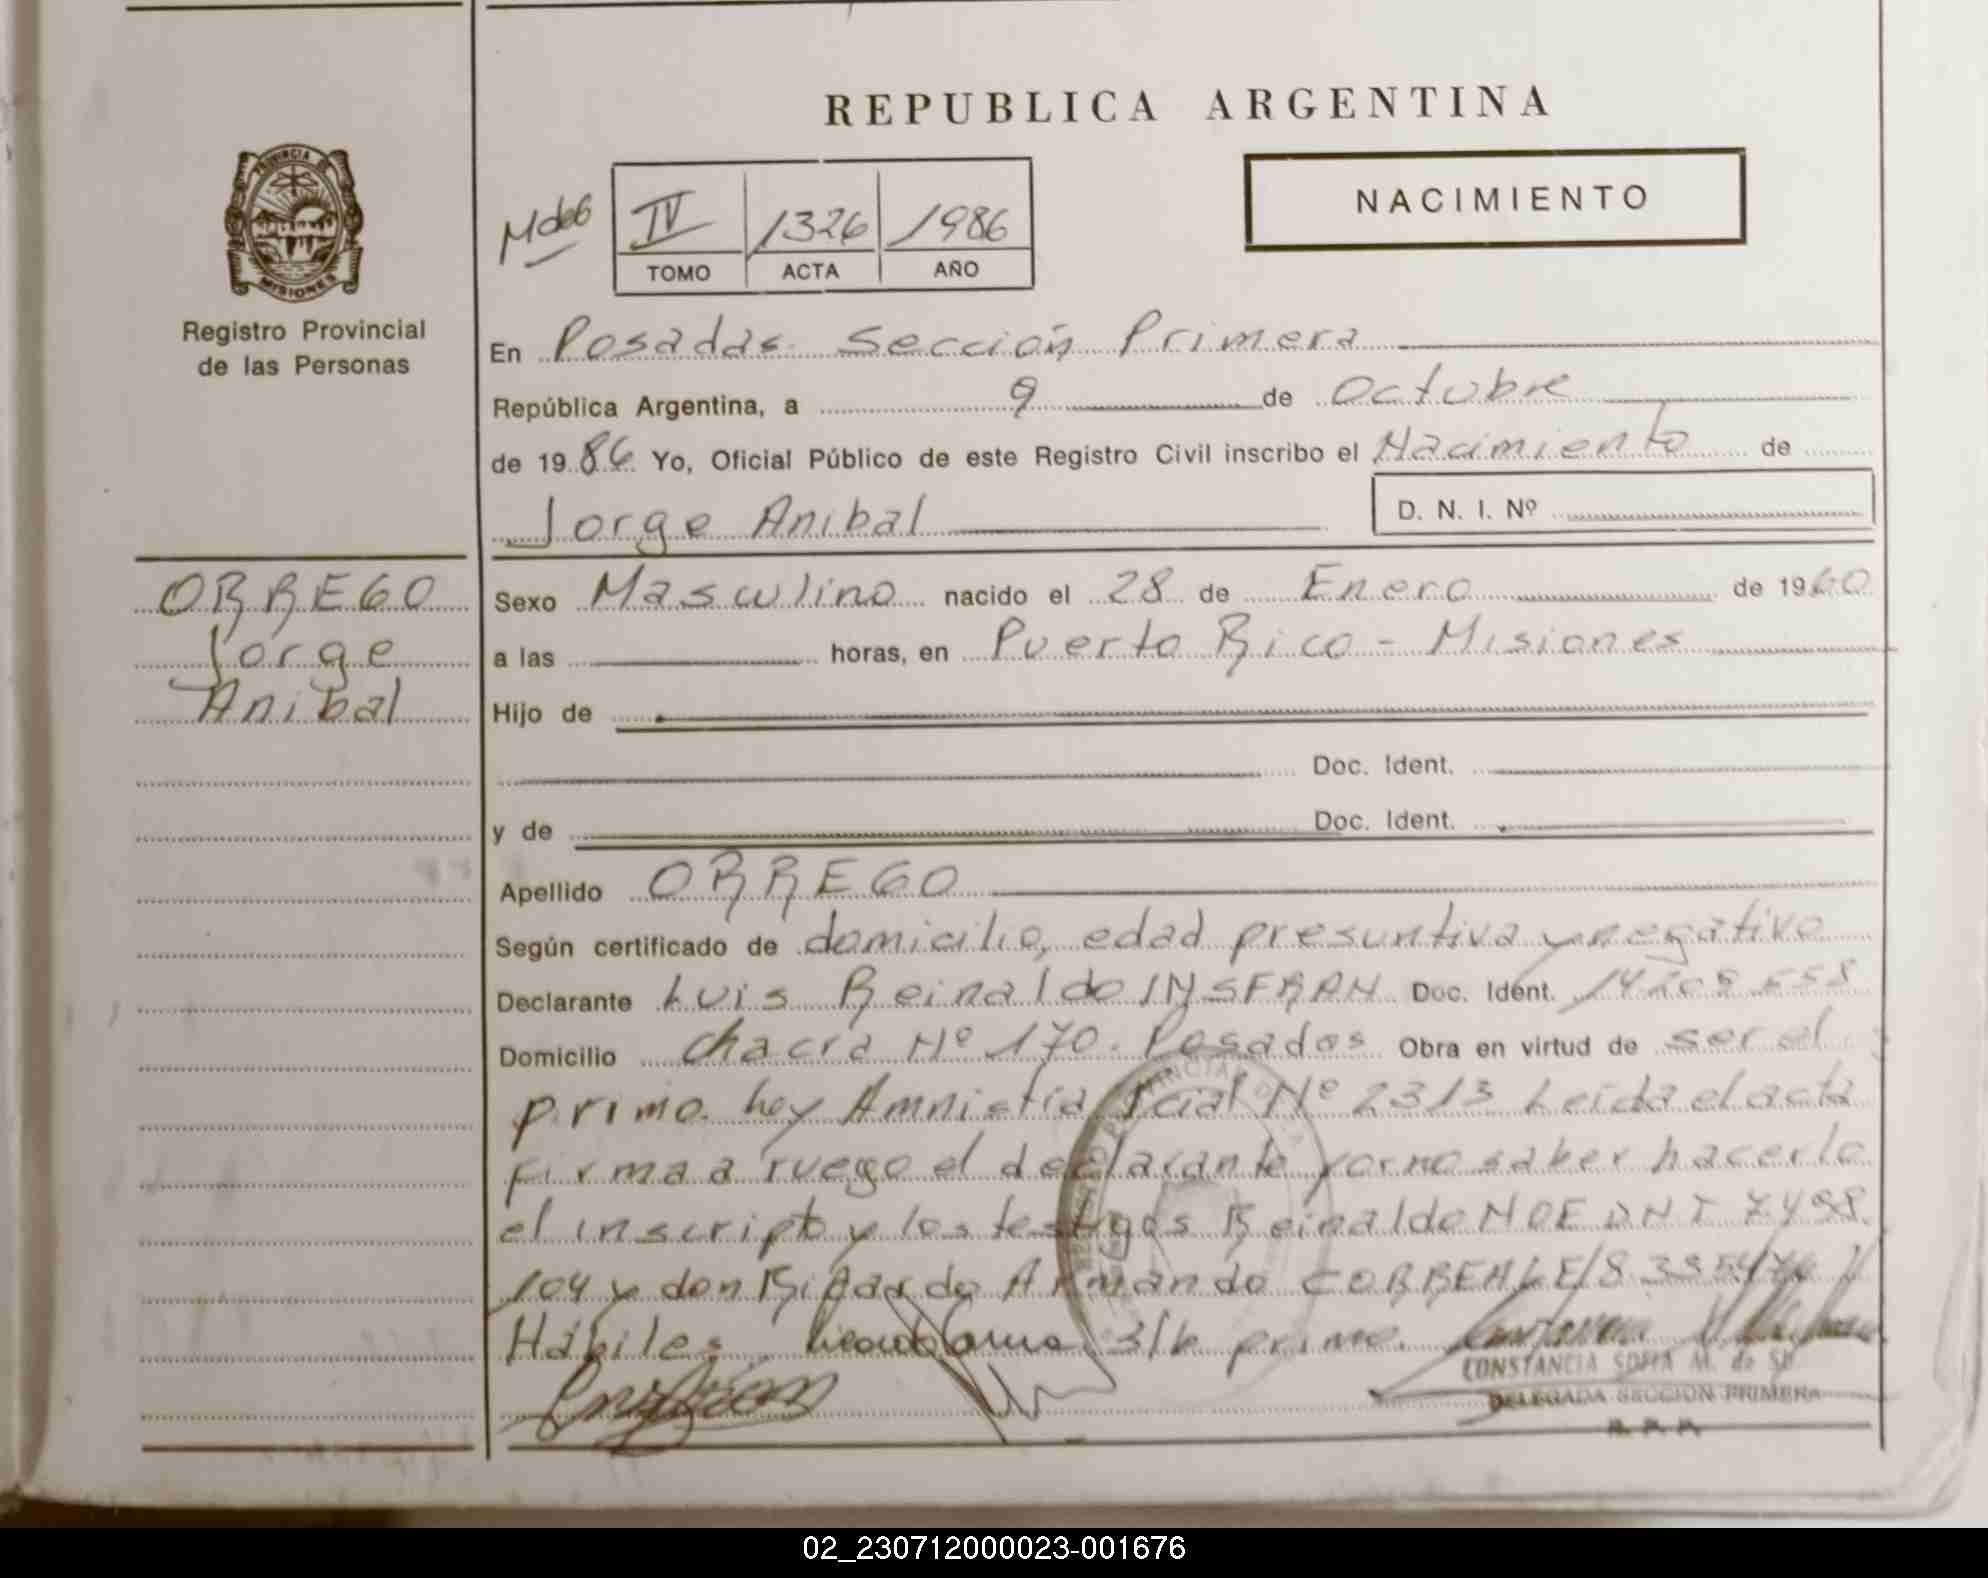 REPUBLICA ARGENTINA
PROVINCIA DE
MISIONES
Registro Provincial
de las Personas
IV 1326 1986
TOMO ACTA AÑO
NACIMIENTO
En Posadas Sección Primera
República Argentina, a 9 de Octubre
de 19 86 Yo, Oficial Público de este Registro Civil inscribo el Nacimiento de
Jorge Anibal D. N. I. Nº
ORREGO
Jorge
Anibal
Sexo Masculino nacido el 28 de Enero de 1960
a las horas, en Puerto Rico - Misiones
Hijo de
Doc. Ident.
y de Doc. Ident.
Apellido ORREGO
Según certificado de domicilio, edad presuntiva y negativo
Declarante Luis Reinaldo INSFRAN Doc. Ident.
Domicilio chacra Nº 170. Posadas Obra en virtud de ser el
primo. hoy Amnistía Nº 2313 Leída el acta
firma a ruego el declarante por no saber hacerlo
el inscripto y los testigos Reinaldo NOE DNI 7498.
104 y don Armando
Hábiles. primo.
CONSTANCIA SOFIA M. de
DELEGADA SECCION PRIMERA
02_230712000023-001676